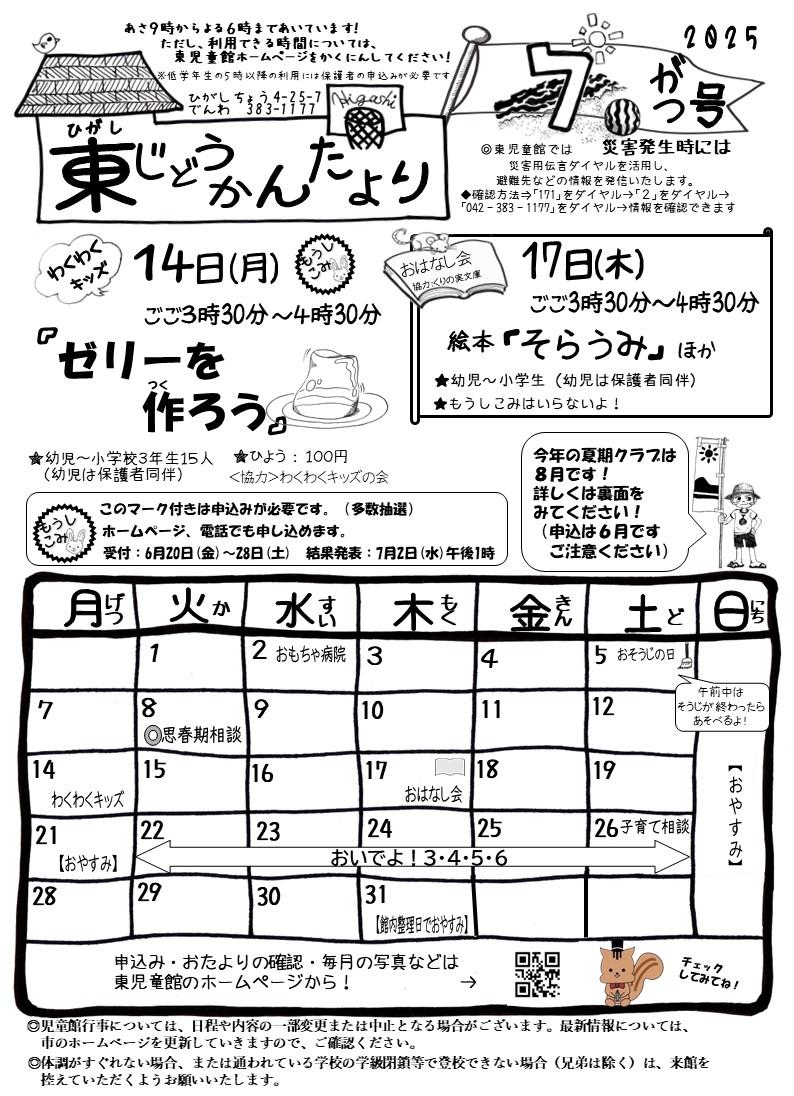 あさ9時からよる6時まであいています!
ただし、利用できる時間については、
東児童館ホームページをかくにんしてください!
※低学年生の5時以降の利用には保護者の申込みが必要です
ひがしちょう4-25-7
でんわ 383-1177
Higashi
ひがし
東じどうかんたより
2025
7がつ号
◎東児童館では 災害発生時には
災害用伝言ダイヤルを活用し、
避難先などの情報を発信いたします。
◆確認方法⇒「171」をダイヤル→「2」をダイヤル→
「042-383-1177」をダイヤル→情報を確認できます
わくわく
キッズ
14日(月)
もうし
こみ
ごご3時30分~4時30分
『ゼリーを
つく
作ろう』
★幼児~小学校3年生15人 ★ひよう:100円
(幼児は保護者同伴) <協力>わくわくキッズの会
おはなし会
協力:くりの実文庫
17日(木)
ごご3時30分~4時30分
絵本『そらうみ』ほか
★幼児~小学生(幼児は保護者同伴)
★もうしこみはいらないよ!
もうし
こみ
このマーク付きは申込みが必要です。(多数抽選)
ホームページ、電話でも申し込めます。
受付:6月20日(金)~28日(土) 結果発表:7月2日(水)午後1時
今年の夏期クラブは
8月です!
詳しくは裏面を
みてください!
(申込は6月です
ご注意ください)
月げつ 火か 水すい 木もく 金きん 土ど 日にち
1 2 おもちゃ病院 3 4 5 おそうじの日
午前中は
そうじが終わったら
あそべるよ!
7 8 9 10 11 12
◎思春期相談
14 15 16 17 18 19
わくわくキッズ おはなし会
【おやすみ】
21 22 23 24 25 26 子育て相談
【おやすみ】 おいでよ!3・4・5・6
28 29 30 31
【館内整理日でおやすみ】
申込み・おたよりの確認・毎月の写真などは
東児童館のホームページから! →
チェック
してみてね!
◎児童館行事については、日程や内容の一部変更または中止となる場合がございます。最新情報については、
市のホームページを更新していきますので、ご確認ください。
◎体調がすぐれない場合、または通われている学校の学級閉鎖等で登校できない場合(兄弟は除く)は、来館を
控えていただくようお願いいたします。